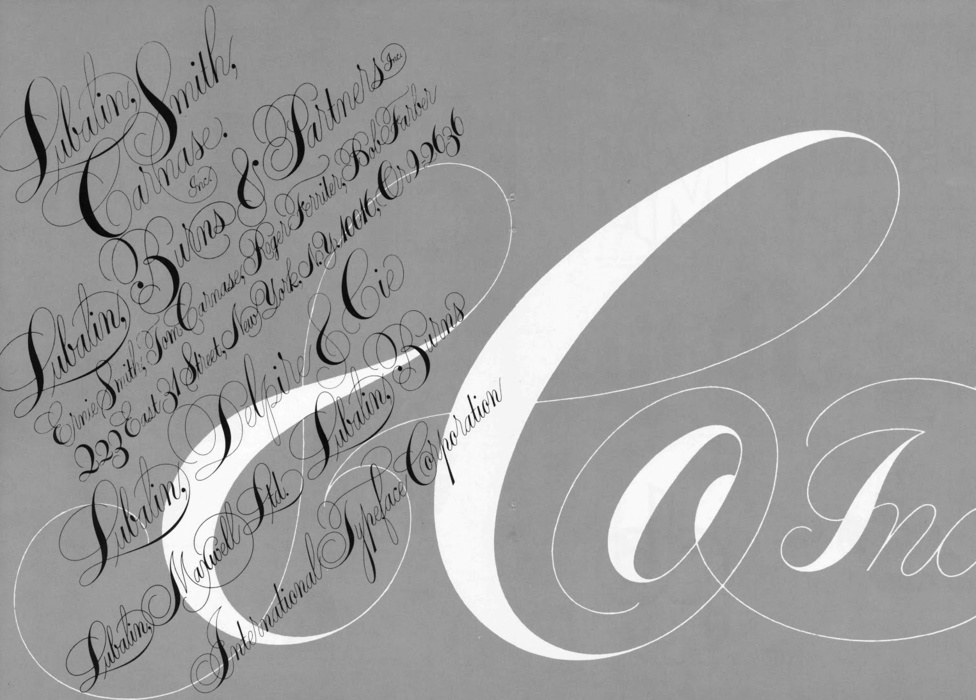 Lubalin, Smith,
Carnase. Inc.
Lubalin, Burns & Partners Inc.
Ernie Smith, Tom Carnase, Roger Ferriter, Bob Farber
223 East 31 Street, New York, N.Y. 10016, Or 9.2636
Lubalin, Delpire & Cie
Lubalin, Maxwell Ltd. Lubalin, Burns
International Typeface Corporation
& Co Inc